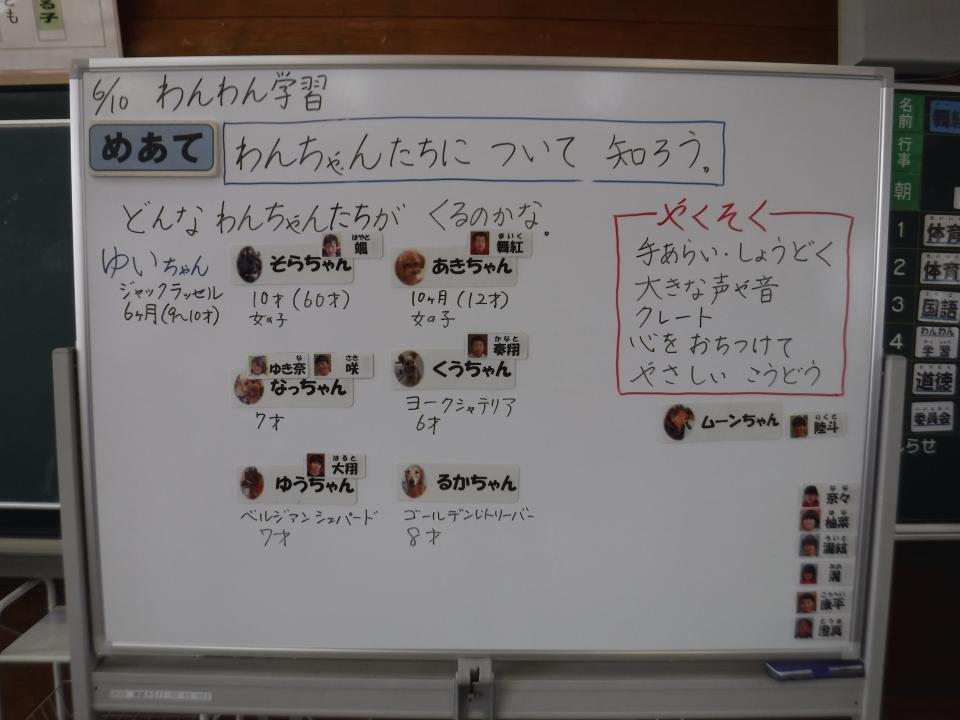 る子
とも
6/10 わんわん学習
めあて
わんちゃんたちに ついて 知ろう。
どんな わんちゃんたちが くるのかな。
ゆいちゃん
ジャックラッセル
6ヶ月(9~10才)
はやと
颯
そらちゃん
10才(60才)
女の子
まいく
舞紅
あきちゃん
10ヶ月(12才)
女の子
な
ゆき奈
さき
咲
なっちゃん
7才
かなと
奏翔
くうちゃん
ヨークシャテリア
6才
はると
大翔
ゆうちゃん
ベルジアンシェパード
7才
るかちゃん
ゴールデンレトリーバー
8才
やくそく
手あらい・しょうどく
大きな声や音
クレート
心を おちつけて
やさしい こうどう
ムーンちゃん
りくと
陸斗
なな
奈々
ゆな
柚菜
ういと
みお
澪
こうへい
康平
とうま
澄真
名前
行事
舞紅
朝
1 体育
2 体育
3 国語
4 わんわん
学習
道徳
委員会
らせ